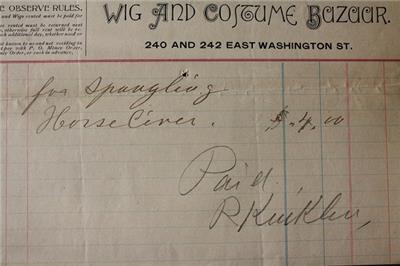 E OBSERVE RULES.
and Wigs rented must be paid for
rented must be returned next
otherwise full rent will be
each additional day, whether used or
known to us and not residing in
pay with P. O. Money Order,
Money Order, or cash in advance.
WIG AND COSTUME BAZAAR.
240 AND 242 EAST WASHINGTON ST.
for spangling
Horse Cover. $ 4.00
Paid
R